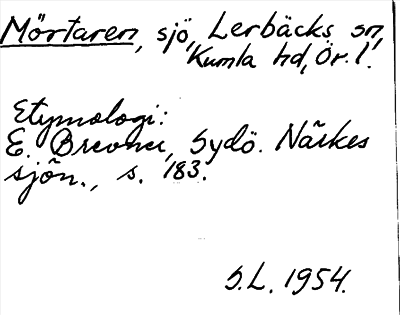 Mörtaren, sjö, Lerbäcks sn,
Kumla hd, Ör. l.
Etymologi:
E. Brevner, Sydö. Närkes
sjön., s. 183.
S.L. 1954.